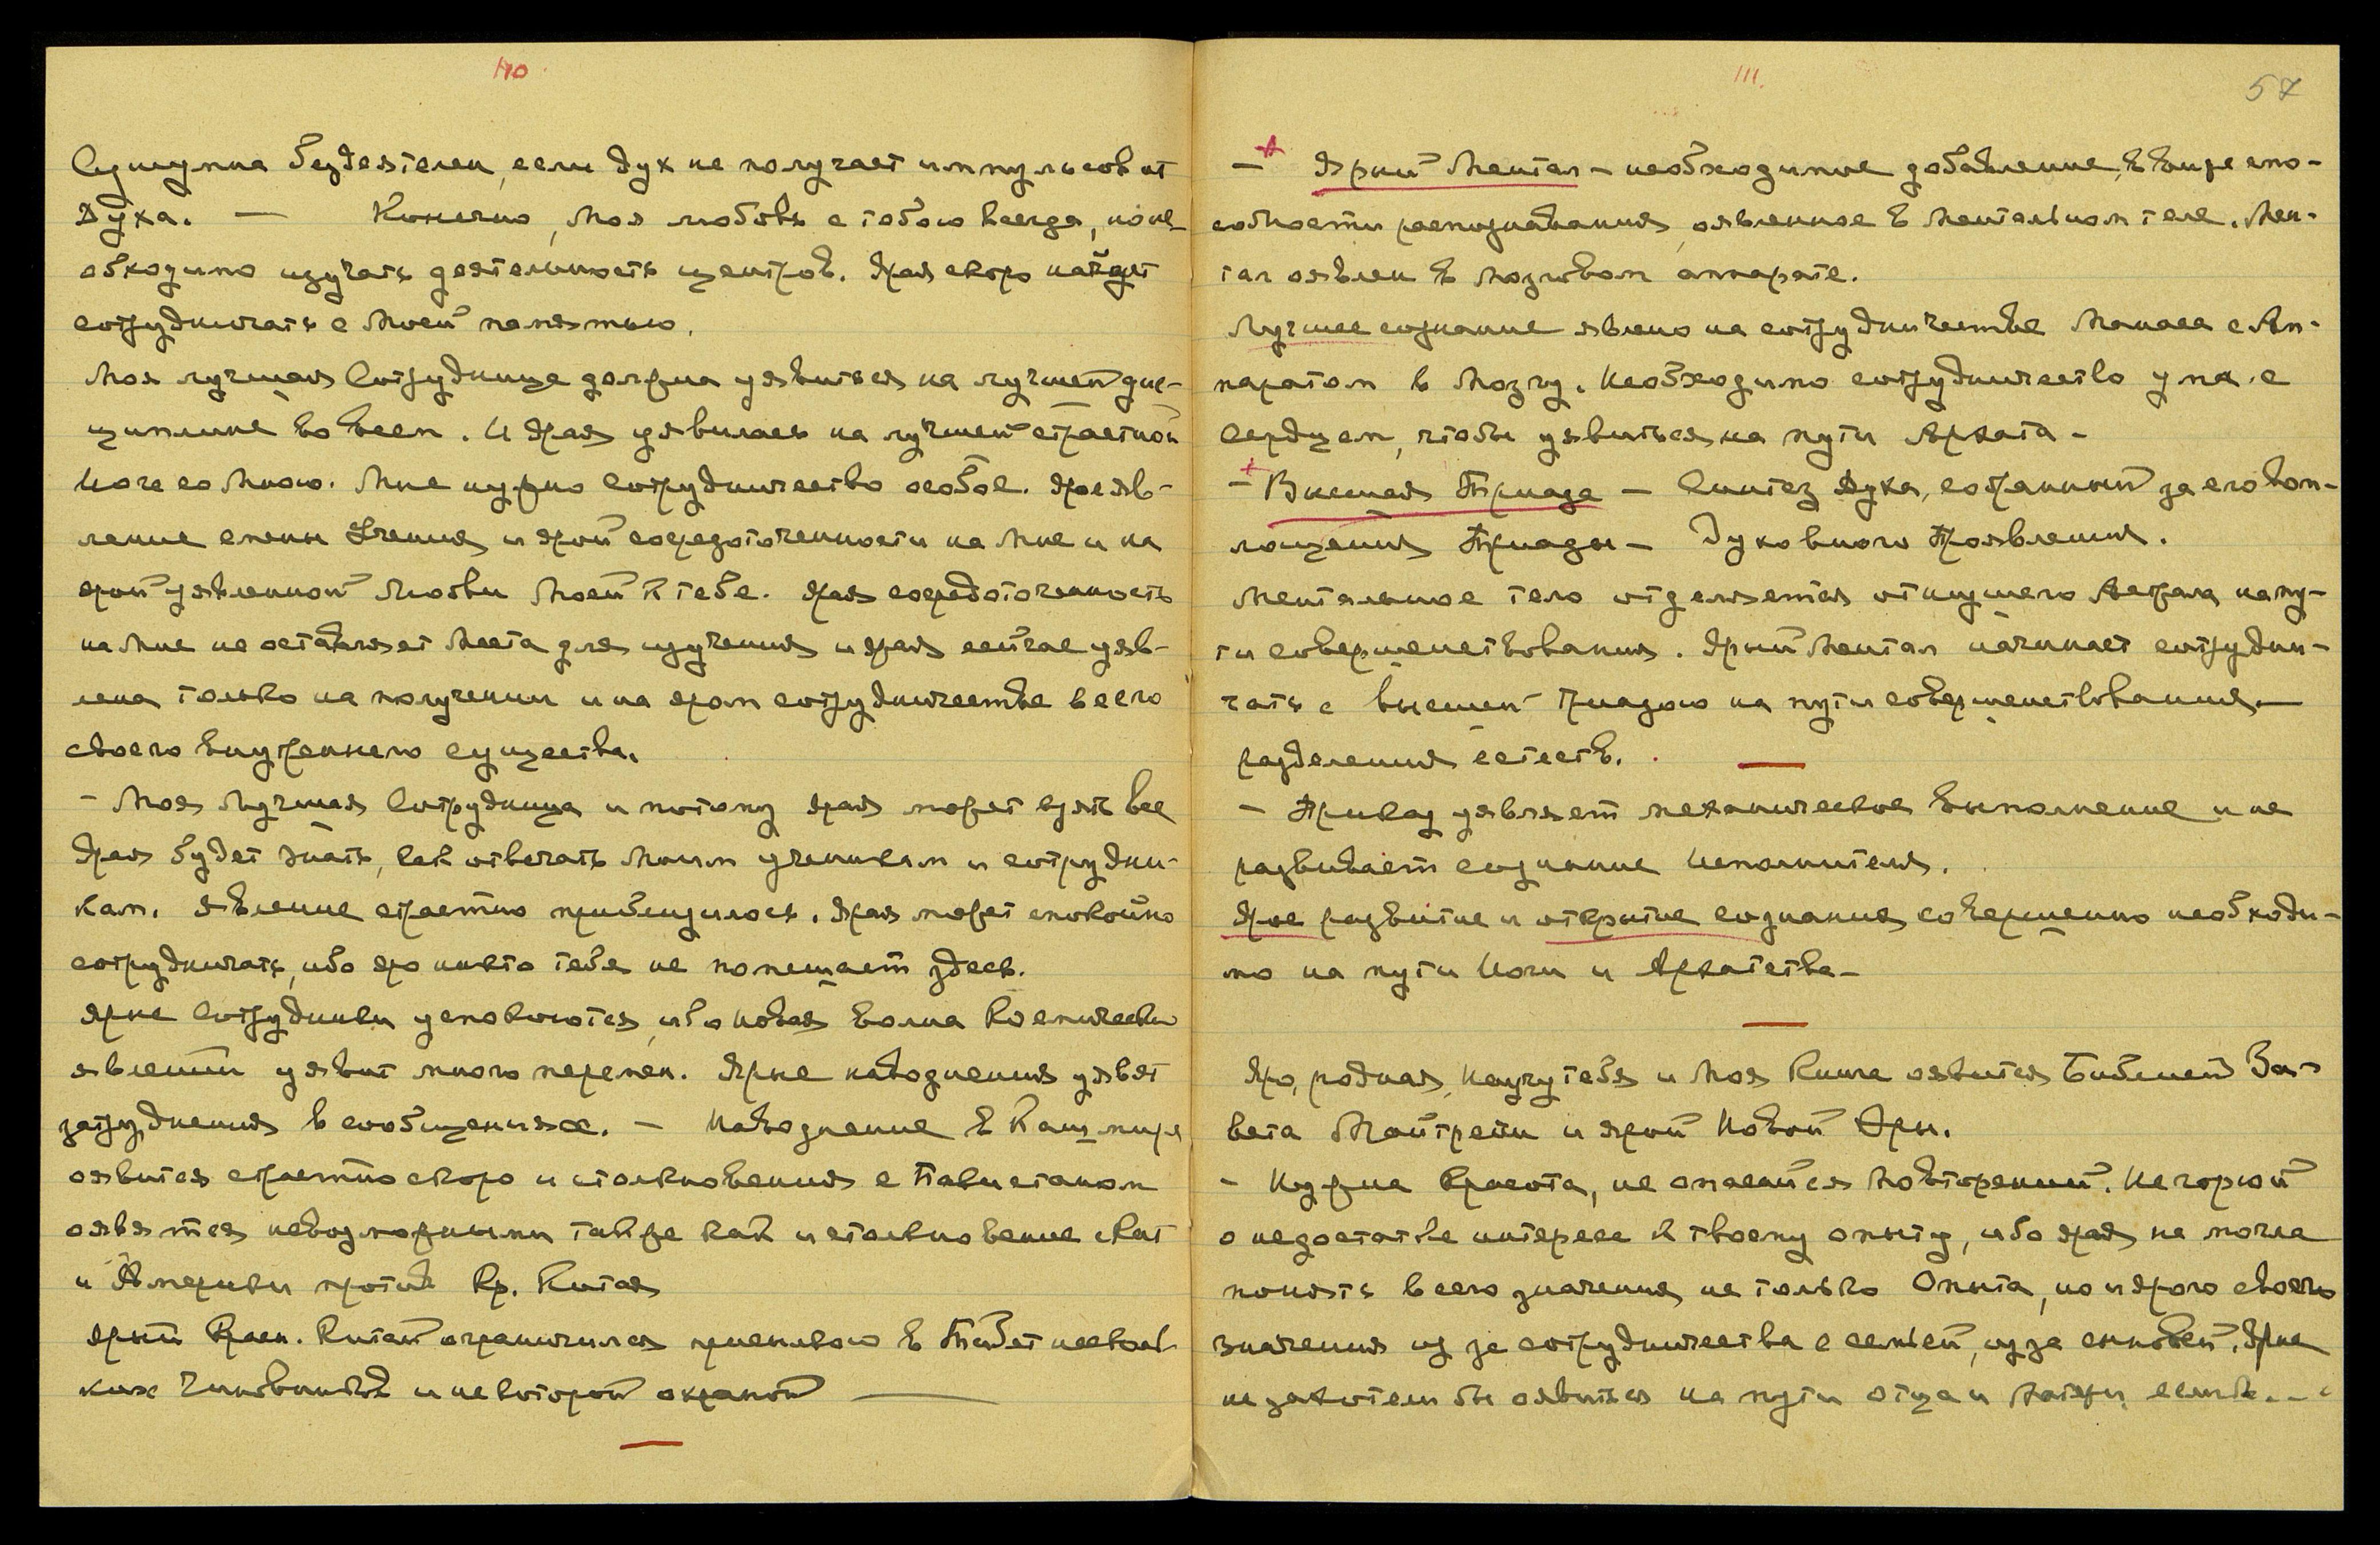 110
Сушумна бездеятелен, если дух не получает импульсов от
Духа. — Конечно, Моя любовь с тобою всегда, но не-
обходимо изучать деятельность центров. Ярая скоро найдет
сотрудничать с Моей памятью.
Моя лучшая Сотрудница должна уявиться на лучшей дис-
циплине во всем. И Ярая уявилась на лучшей страстной
Иоге со Мною. Мне нужно сотрудничество особое. Яро яв-
ление смены Учения и ярой сосредоточенности на Мне и на
ярой уявленной Любви Моей к тебе. Ярая сосредоточенность
на Мне не оставляет места для изучения и ярая сейчас уяв-
лена только на получении и на яром сотрудничестве всего
своего внутреннего существа.
- Моя Лучшая Сотрудница и потому ярая может взять все
Ярая будет знать, как отвечать Моим ученикам и сотрудни-
кам. Явление страстно приблизилось. Ярая может спокойно
сотрудничать, ибо яро никто тебе не помешает здесь.
Ярые Сотрудники успокоются, ибо Новая волна Космически
явлений уявит много перемен. Ярые наводнения уявят
затруднения в сообщениях. — Наводнение в Кашмире
оявится страстно скоро и столкновения с Пакистаном
оявятся невозможными также как и столкновение
и Америки против Кр. Китая
Ярый Красн. Китай ограничился присылкою в Тибет нескольк
ких Чиновников и некоторой охраной —
111.
57
- + Ярый Ментал - необходимое добавление, в виде спо-
собности распознавания, оявленное в ментальном теле. Мен-
тал оявлен в мозговом аппарате.
Лучшее сознание явлено на сотрудничестве Манаса с Ап-
паратом в Мозгу. Необходимо сотрудничество ума с
Сердцем, чтобы уявиться на пути Архата -
- + Высшая Триада — Синтез Духа, собранный за его воп-
лощения Триады — Духовного Проявления.
Ментальное тело отделяется от низшего Астрала на пу-
ти совершенствования. Ярый Ментал начинает сотрудни-
чать с высшей Триадою на пути совершенствования —
разделения естеств.
- Приказ уявляет механическое выполнение и не
развивает сознание Исполнителя.
Ярое развитие и открытие сознания совершенно необходи-
мо на пути Иоги и Архатства -
Яро, родная, Научу тебя и Моя Книга оявится Библией За-
вета Майтрейи и ярой Новой Эры.
- Нужна Красота, не опасайся Повторений. Не горюй
о недостатке интереса к твоему опыту, ибо ярая не могла
понять всего значения не только Опыта, но и ярого своего
значения из за сотрудничества с семьей, из за сыновей. Ярые
не захотели бы оявиться на пути отца и Матери, если б...